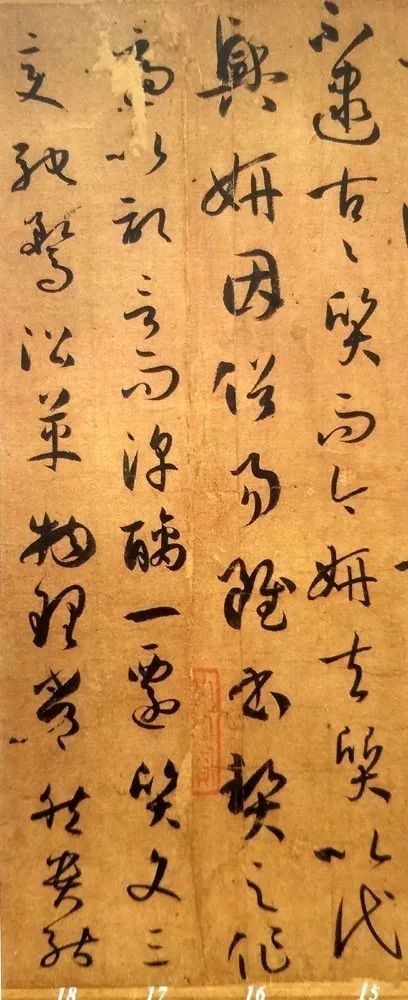 不逮古〻質而今妍夫質以代
興妍因俗易雖書契之作
適以記言而淳醨一遷質文三
變馳鶩沿革物理常然貴能
18 17 16 15